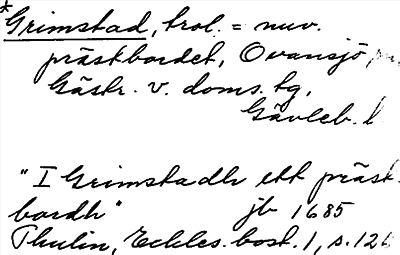 *Grimstad, trol. = nuv.
prästbordet, Ovansjö,
Gästr. v. doms. tg,
Gävleb. l
"I Grimstadh ett präst-
bordh" jb 1685
Thulin, Eckles. bost. 1, s. 126